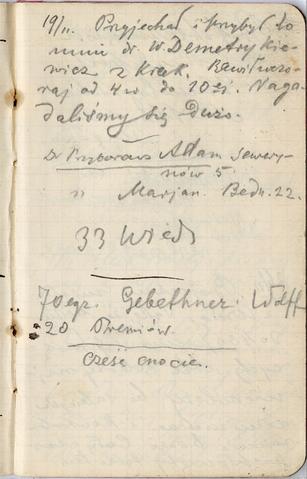 19/11. Przyjechał i przybył do
mnie dr. W. Demetrykie-
wicz z Krak. Bawił wczo-
raj od 4 w do 10 ej. Naga-
daliśmy się dużo.
Dr Przyborows Adam Sewery-
nów 5
" Marjan. Bedn. 22.
33 Wied
70 egz. Gebethner i Wolff
20 Premiów.
Cześć cnocie.